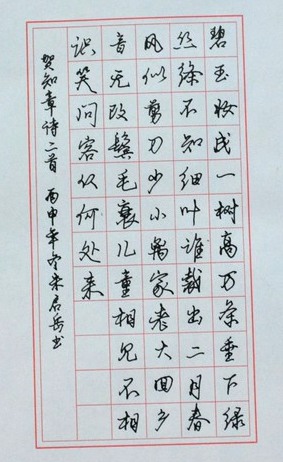 碧玉妆成一树高万条垂下绿
丝绦不知细叶谁裁出二月春
风似剪刀少小离家老大回乡
音无改鬓毛衰儿童相见不相
识笑问客从何处来
贺知章诗二首 丙申年冬 书